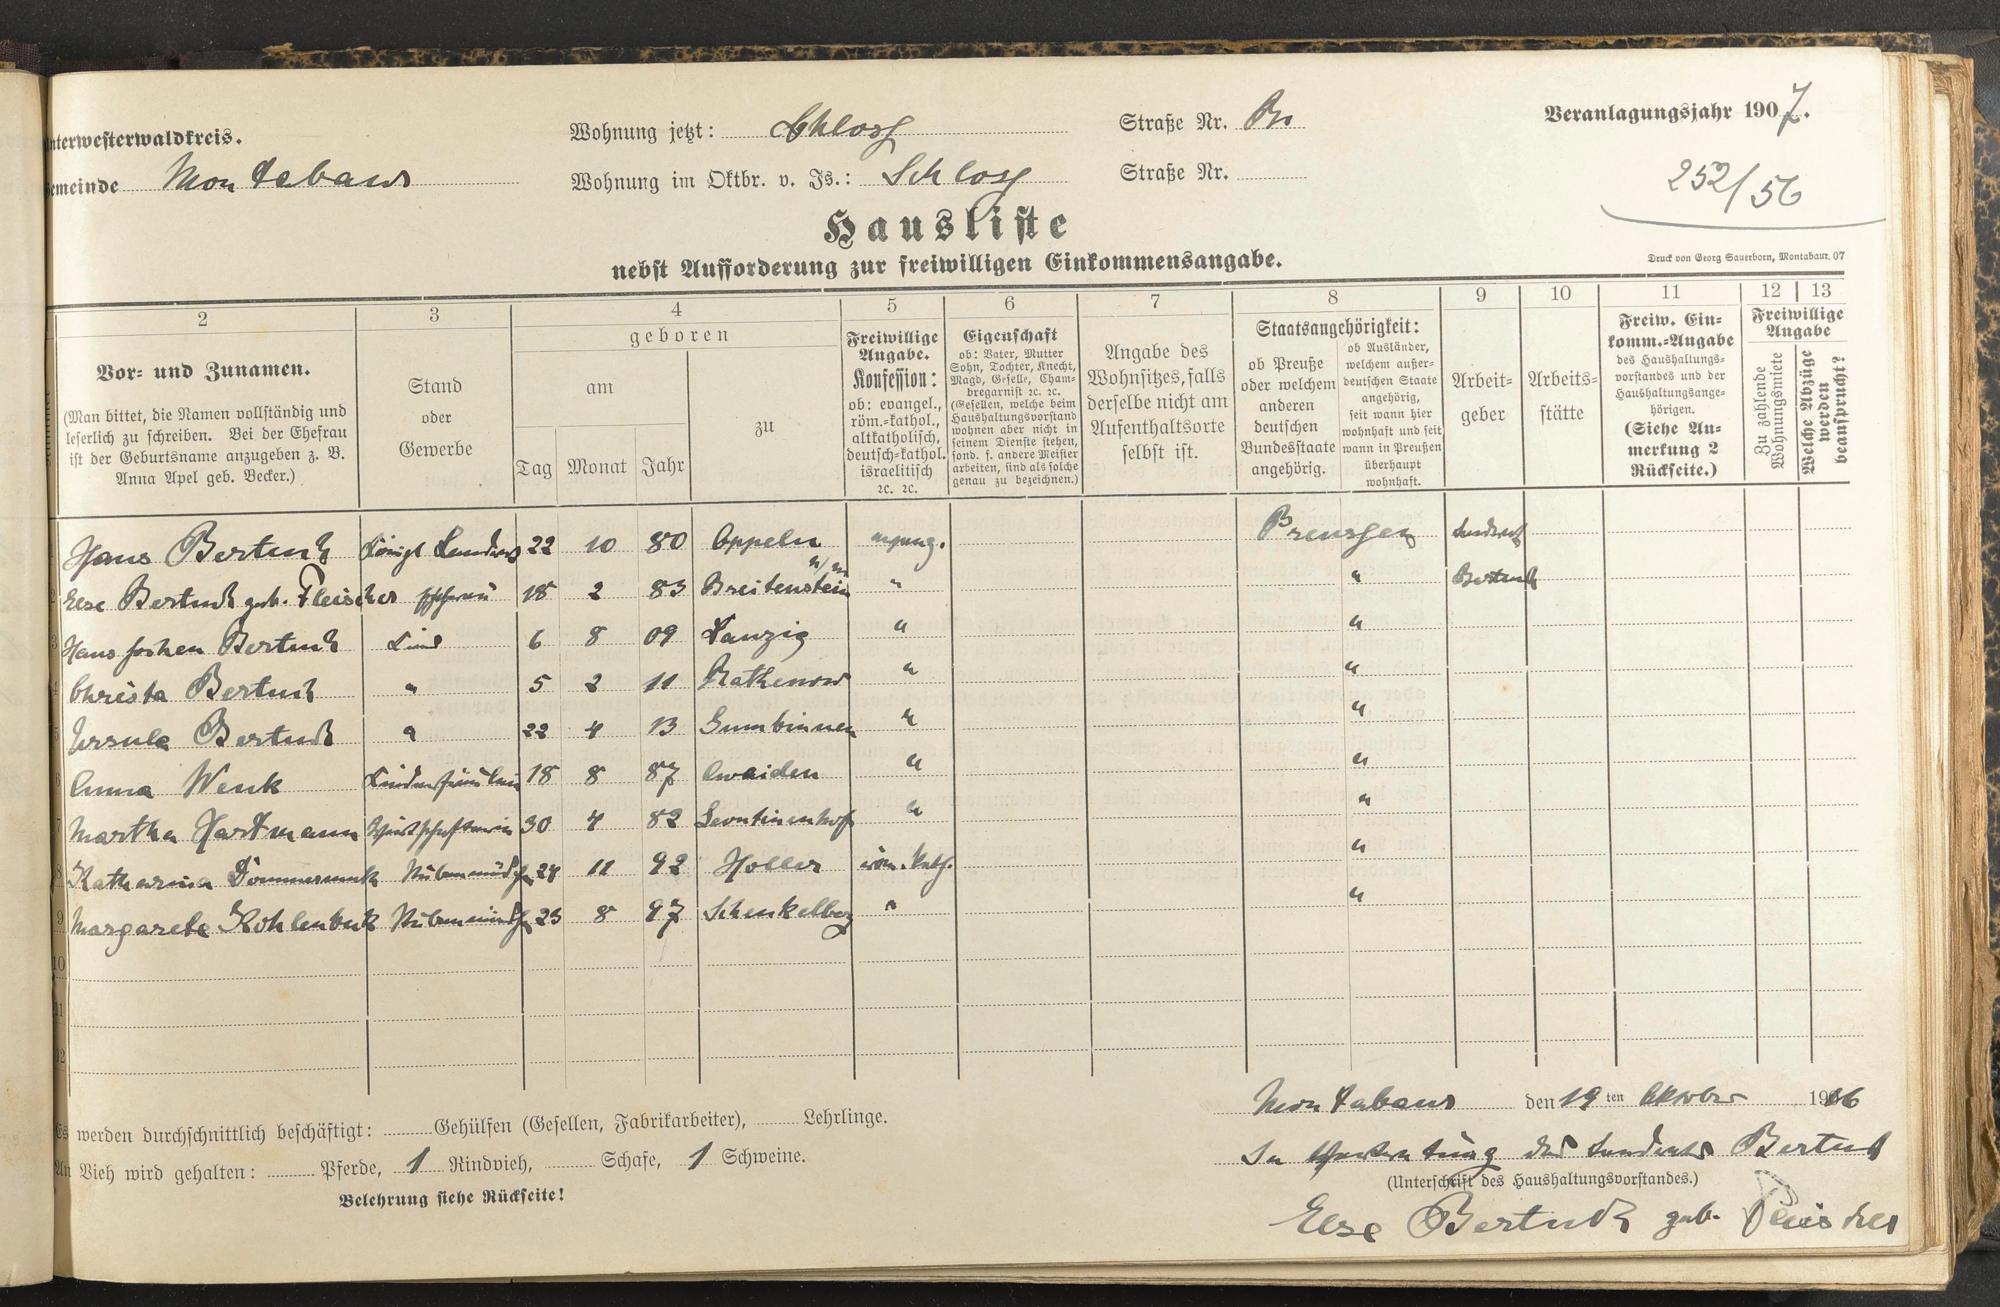 Unterwesterwaldkreis.
Gemeinde Montabaur
Wohnung jetzt: Schloss
Straße Nr.
Wohnung im Oktbr. v. Js.: Schloss
Straße Nr.
Veranlagungsjahr 1907.
252/56
Hausliste
nebst Aufforderung zur freiwilligen Einkommensangabe.
Druck von Georg Sauerborn, Montabaur. 07
2 3 4 5 6 7 8 9 10 11 12 13
Vor- und Zunamen.
(Man bittet, die Namen vollständig und
leserlich zu schreiben. Bei der Ehefrau
ist der Geburtsname anzugeben z. B.
Anna Apel geb. Becker.)
Stand
oder
Gewerbe
geboren
am
Tag Monat Jahr
zu
Freiwillige
Angabe.
Konfession:
ob: evangel.,
röm.-kathol.,
altkatholisch,
deutsch-kathol.
israelitisch
ꝛc. ꝛc.
Eigenschaft
ob: Vater, Mutter
Sohn, Tochter, Knecht,
Magd, Geselle, Cham-
bregarnist ꝛc. ꝛc.
(Gesellen, welche beim
Haushaltungsvorstand
wohnen aber nicht in
seinem Dienste stehen,
sond. f. andere Meister
arbeiten, sind als solche
genau zu bezeichnen.)
Angabe des
Wohnsitzes, falls
derselbe nicht am
Aufenthaltsorte
selbst ist.
Staatsangehörigkeit:
ob Preuße
oder welchem
anderen
deutschen
Bundesstaate
angehörig.
ob Ausländer,
welchem außer-
deutschen Staate
angehörig,
seit wann hier
wohnhaft und seit
wann in Preußen
überhaupt
wohnhaft.
Arbeit-
geber
Arbeits-
stätte
Freiw. Ein-
komm.-Angabe
des Haushaltungs-
vorstandes und der
Haushaltungsange-
hörigen.
(Siehe An-
merkung 2
Rückseite.)
Freiwillige
Angabe
Zu zahlende
Wohnungsmiete
Welche Abzüge
werden
beansprucht?
1 Hans Bertuch Königl Landrat 22 10 80 Oppeln evang. Preussen Landrat
2 Else Bertuch geb. Fleischer Ehefrau 18 2 83 Breitenstein N/M " " Bertuch
3 Hans Jochen Bertuch Kind 6 8 09 Danzig " "
4 Christa Bertuch " 5 2 11 Rathenow " "
5 Ursula Bertuch " 22 4 13 Gumbinnen " "
6 Anna Wenk Kinderfräulein 18 8 87 " "
7 Martha Hartmann Wirtschafterin 30 4 82 Leontinenhof " "
8 Katharina 11 92 Holler röm. kath. "
9 Margarete 8 97 Schenkelberg " "
10
11
12
Es werden durchschnittlich beschäftigt: Gehülfen (Gesellen, Fabrikarbeiter), Lehrlinge.
An Vieh wird gehalten: Pferde, 1 Rindvieh, Schafe, 1 Schweine.
Belehrung siehe Rückseite!
Montabaur den 19ten Oktober 1916
In Vertretung des Landrats Bertuch
(Unterschrift des Haushaltungsvorstandes.)
Else Bertuch geb. Fleischer